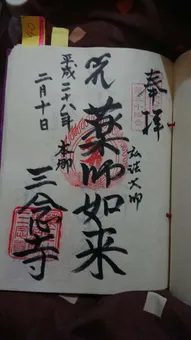 奉拝
弘法大師
薬師如来
本郷
三念寺
平成二十八年
二月十日